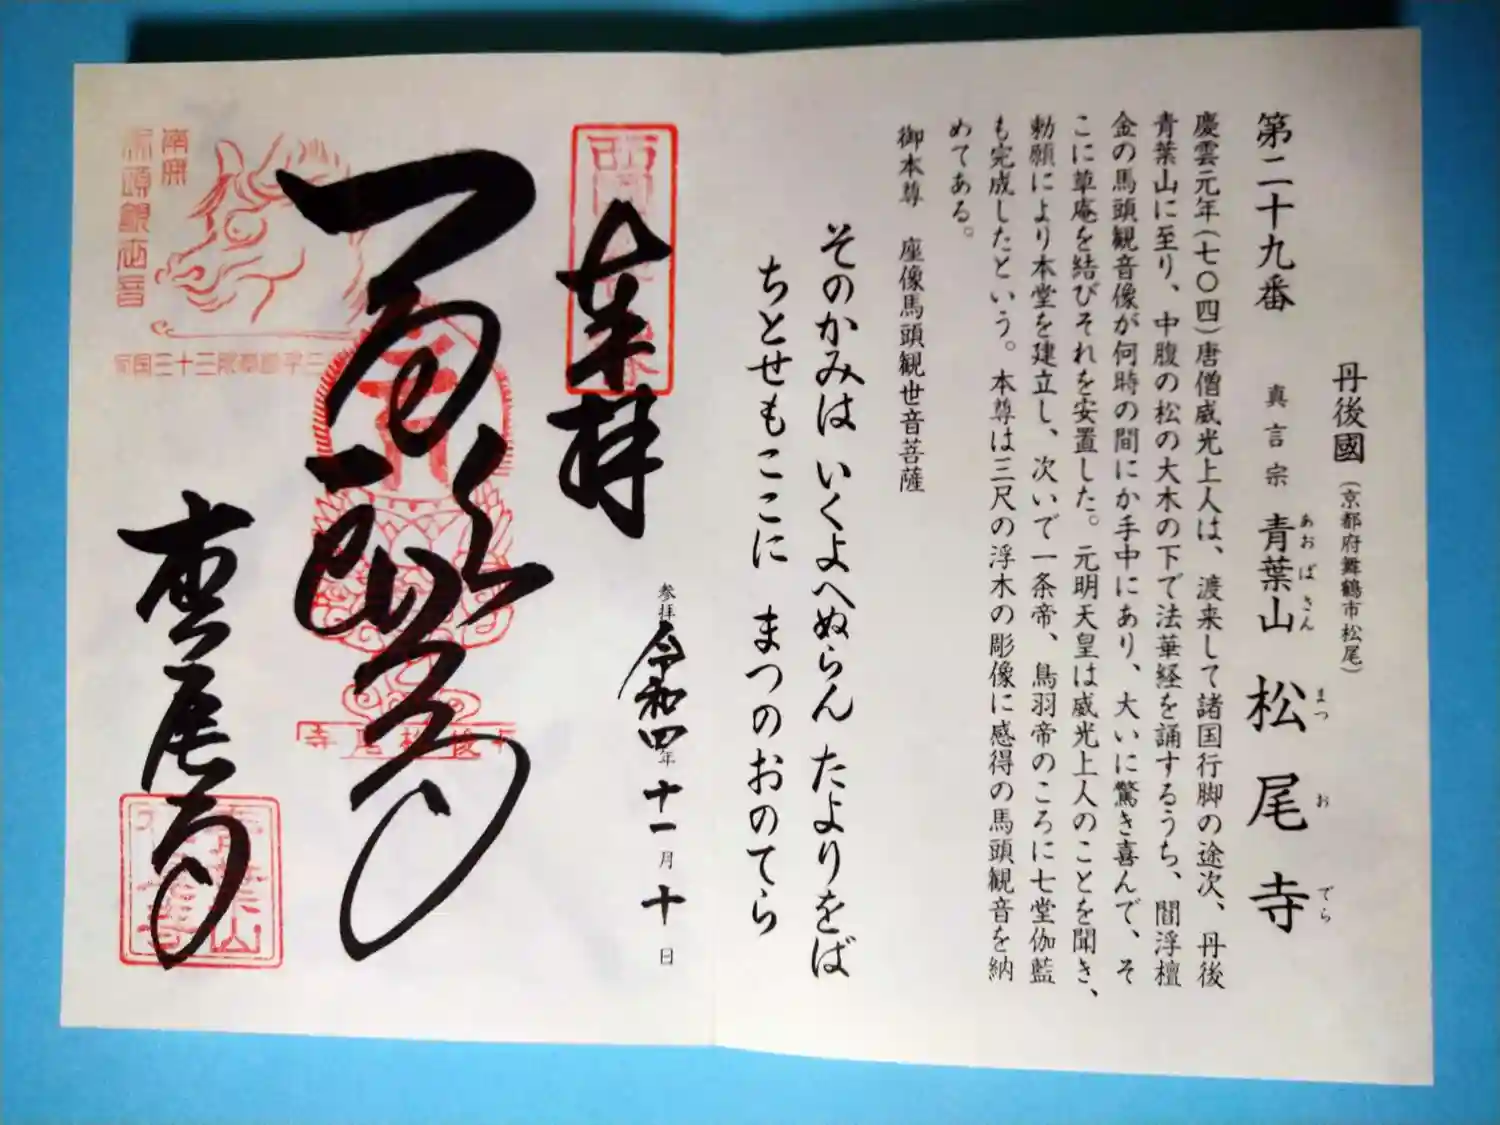 丹後國（京都府舞鶴市松尾）
第二十九番 真言宗 青葉山 松尾寺
あおばさん まつ お でら
慶雲元年（七〇四）唐僧威光上人は、渡来して諸国行脚の途次、丹後
青葉山に至り、中腹の松の大木の下で法華経を誦するうち、閻浮檀
金の馬頭観音像が何時の間にか手中にあり、大いに驚き喜んで、そ
こに草庵を結びそれを安置した。元明天皇は威光上人のことを聞き、
勅願により本堂を建立し、次いで一条帝、鳥羽帝のころに七堂伽藍
も完成したという。本尊は三尺の浮木の彫像に感得の馬頭観音を納
めてある。
御本尊 座像馬頭観世音菩薩
そのかみは いくよへぬらん たよりをば
ちとせもここに まつのおのてら
奉拝
参拝 令和四年 十一月 十日
松尾寺
青葉山